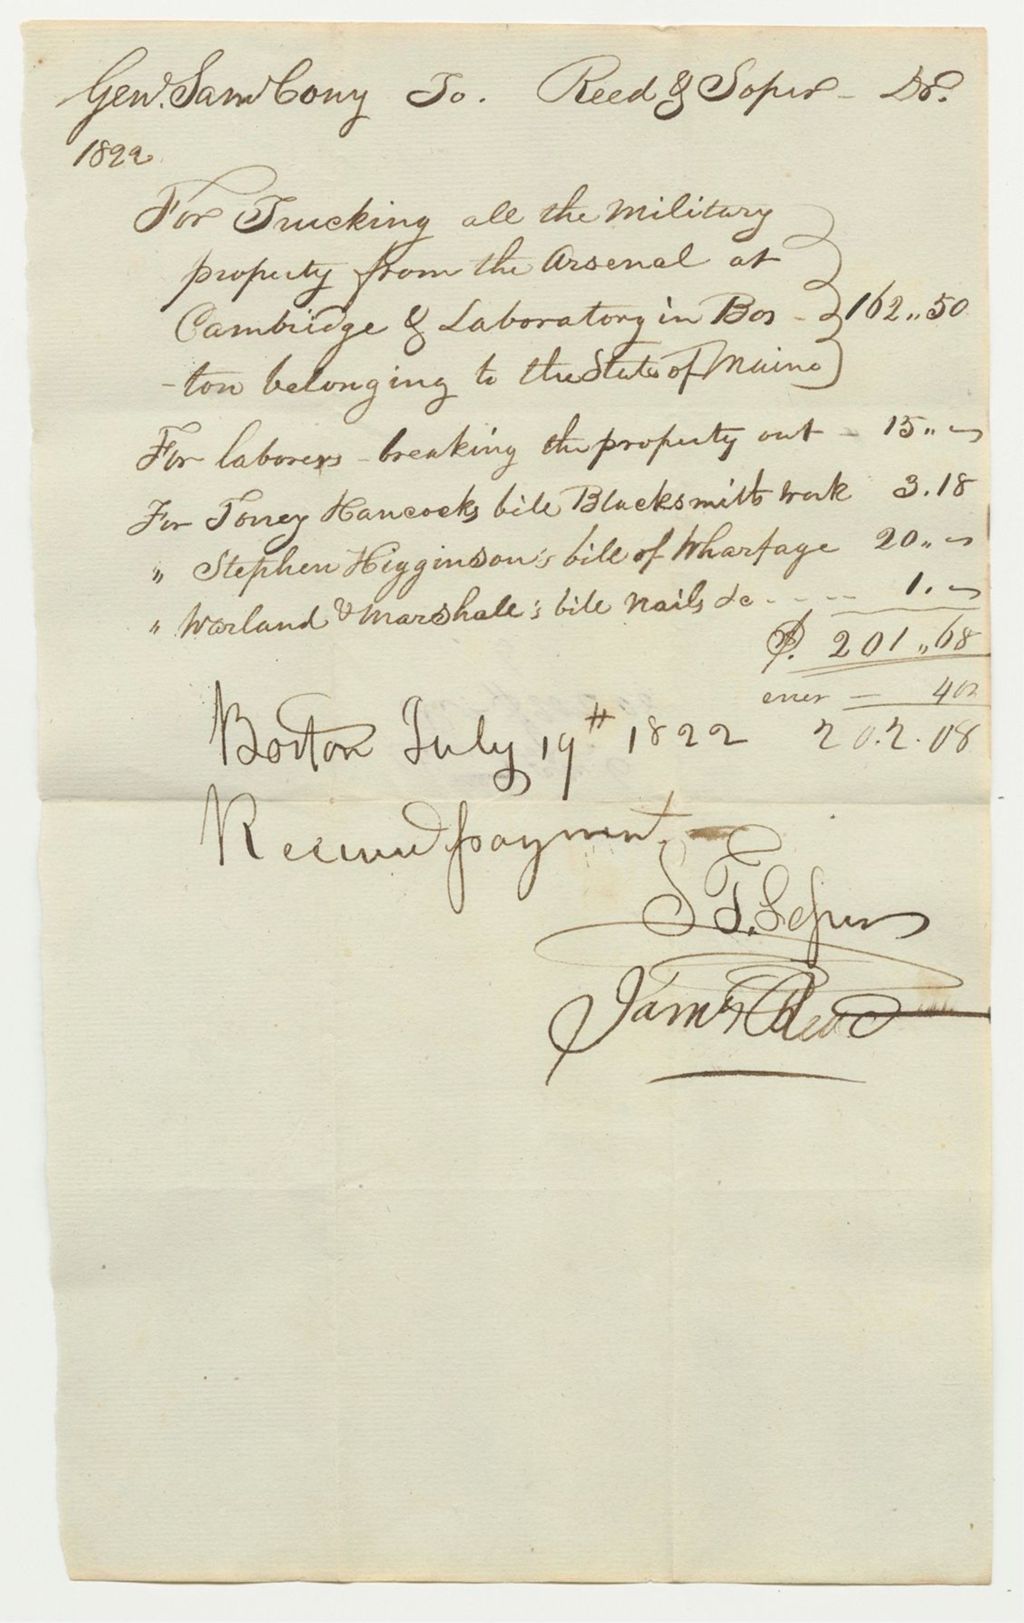 Genl. Sam Cony To. Reed & Soper - Dr.
1822
For Trucking all the Military
property from the Arsenal at
Cambridge & Laboratory in Bos - 162,,50
-ton belonging to the State of Maine
For laborers breaking the property out - 15,,-
For Toney Hancocks bill Blacksmith work 3.18
" Stephen Higginson's bill of Wharfage 20,,-
" Warland & Marshall's bill nails &c - - - - 1.-
$. 201,,68
error - 40
202.08
Boston July 19th 1822
Received payment.
F. Soper
James Reed